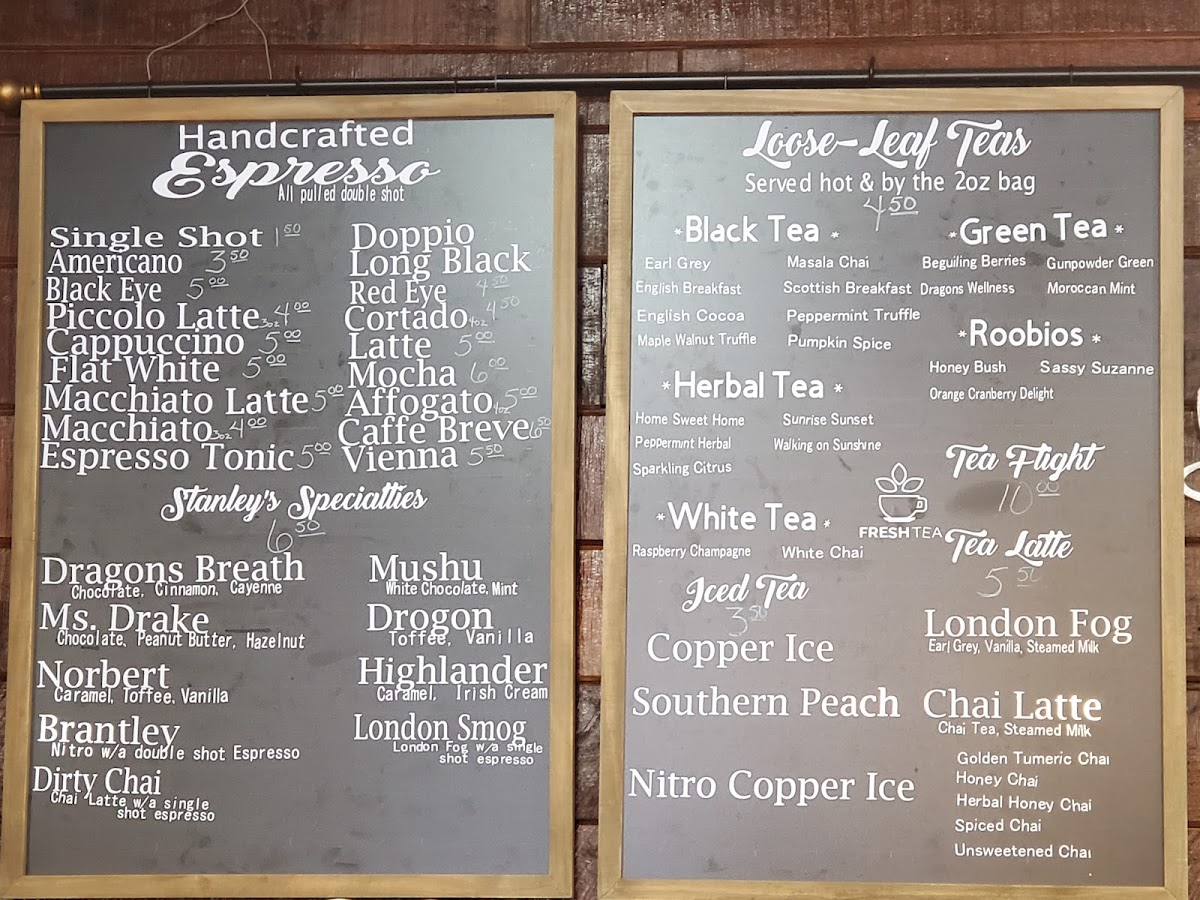 Handcrafted
Espresso
All pulled double shot
Single Shot 1 50
Americano 3 50
Black Eye 5 00
Piccolo Latte 3oz 4 00
Cappuccino 5 00
Flat White 5 00
Macchiato Latte 5 00
Macchiato 3oz 4 00
Espresso Tonic 5 00
Doppio
Long Black
Red Eye 4 50
Cortado 4oz 4 50
Latte 5 00
Mocha 6 00
Affogato 4oz 5 00
Caffe Breve 6 50
Vienna 5 50
Stanley's Specialties
6 50
Dragons Breath
Chocolate, Cinnamon, Cayenne
Ms. Drake
Chocolate, Peanut Butter, Hazelnut
Norbert
Caramel, Toffee, Vanilla
Brantley
Nitro w/a double shot Espresso
Dirty Chai
Chai Latte w/a single
shot espresso
Mushu
White Chocolate, Mint
Drogon
Toffee, Vanilla
Highlander
Caramel, Irish Cream
London Smog
London Fog w/a single
shot espresso
Loose-Leaf Teas
Served hot & by the 2oz bag
4 50
*Black Tea *
Earl Grey Masala Chai
English Breakfast Scottish Breakfast
English Cocoa Peppermint Truffle
Maple Walnut Truffle Pumpkin Spice
*Herbal Tea *
Home Sweet Home Sunrise Sunset
Peppermint Herbal Walking on Sunshine
Sparkling Citrus
*White Tea *
Raspberry Champagne White Chai
Iced Tea
3 50
Copper Ice
Southern Peach
Nitro Copper Ice
*Green Tea *
Beguiling Berries Gunpowder Green
Dragons Wellness Moroccan Mint
*Roobios *
Honey Bush Sassy Suzanne
Orange Cranberry Delight
Tea Flight
10 00
FRESH TEA
Tea Latte
5 50
London Fog
Earl Grey, Vanilla, Steamed Milk
Chai Latte
Chai Tea, Steamed Milk
Golden Tumeric Chai
Honey Chai
Herbal Honey Chai
Spiced Chai
Unsweetened Chai